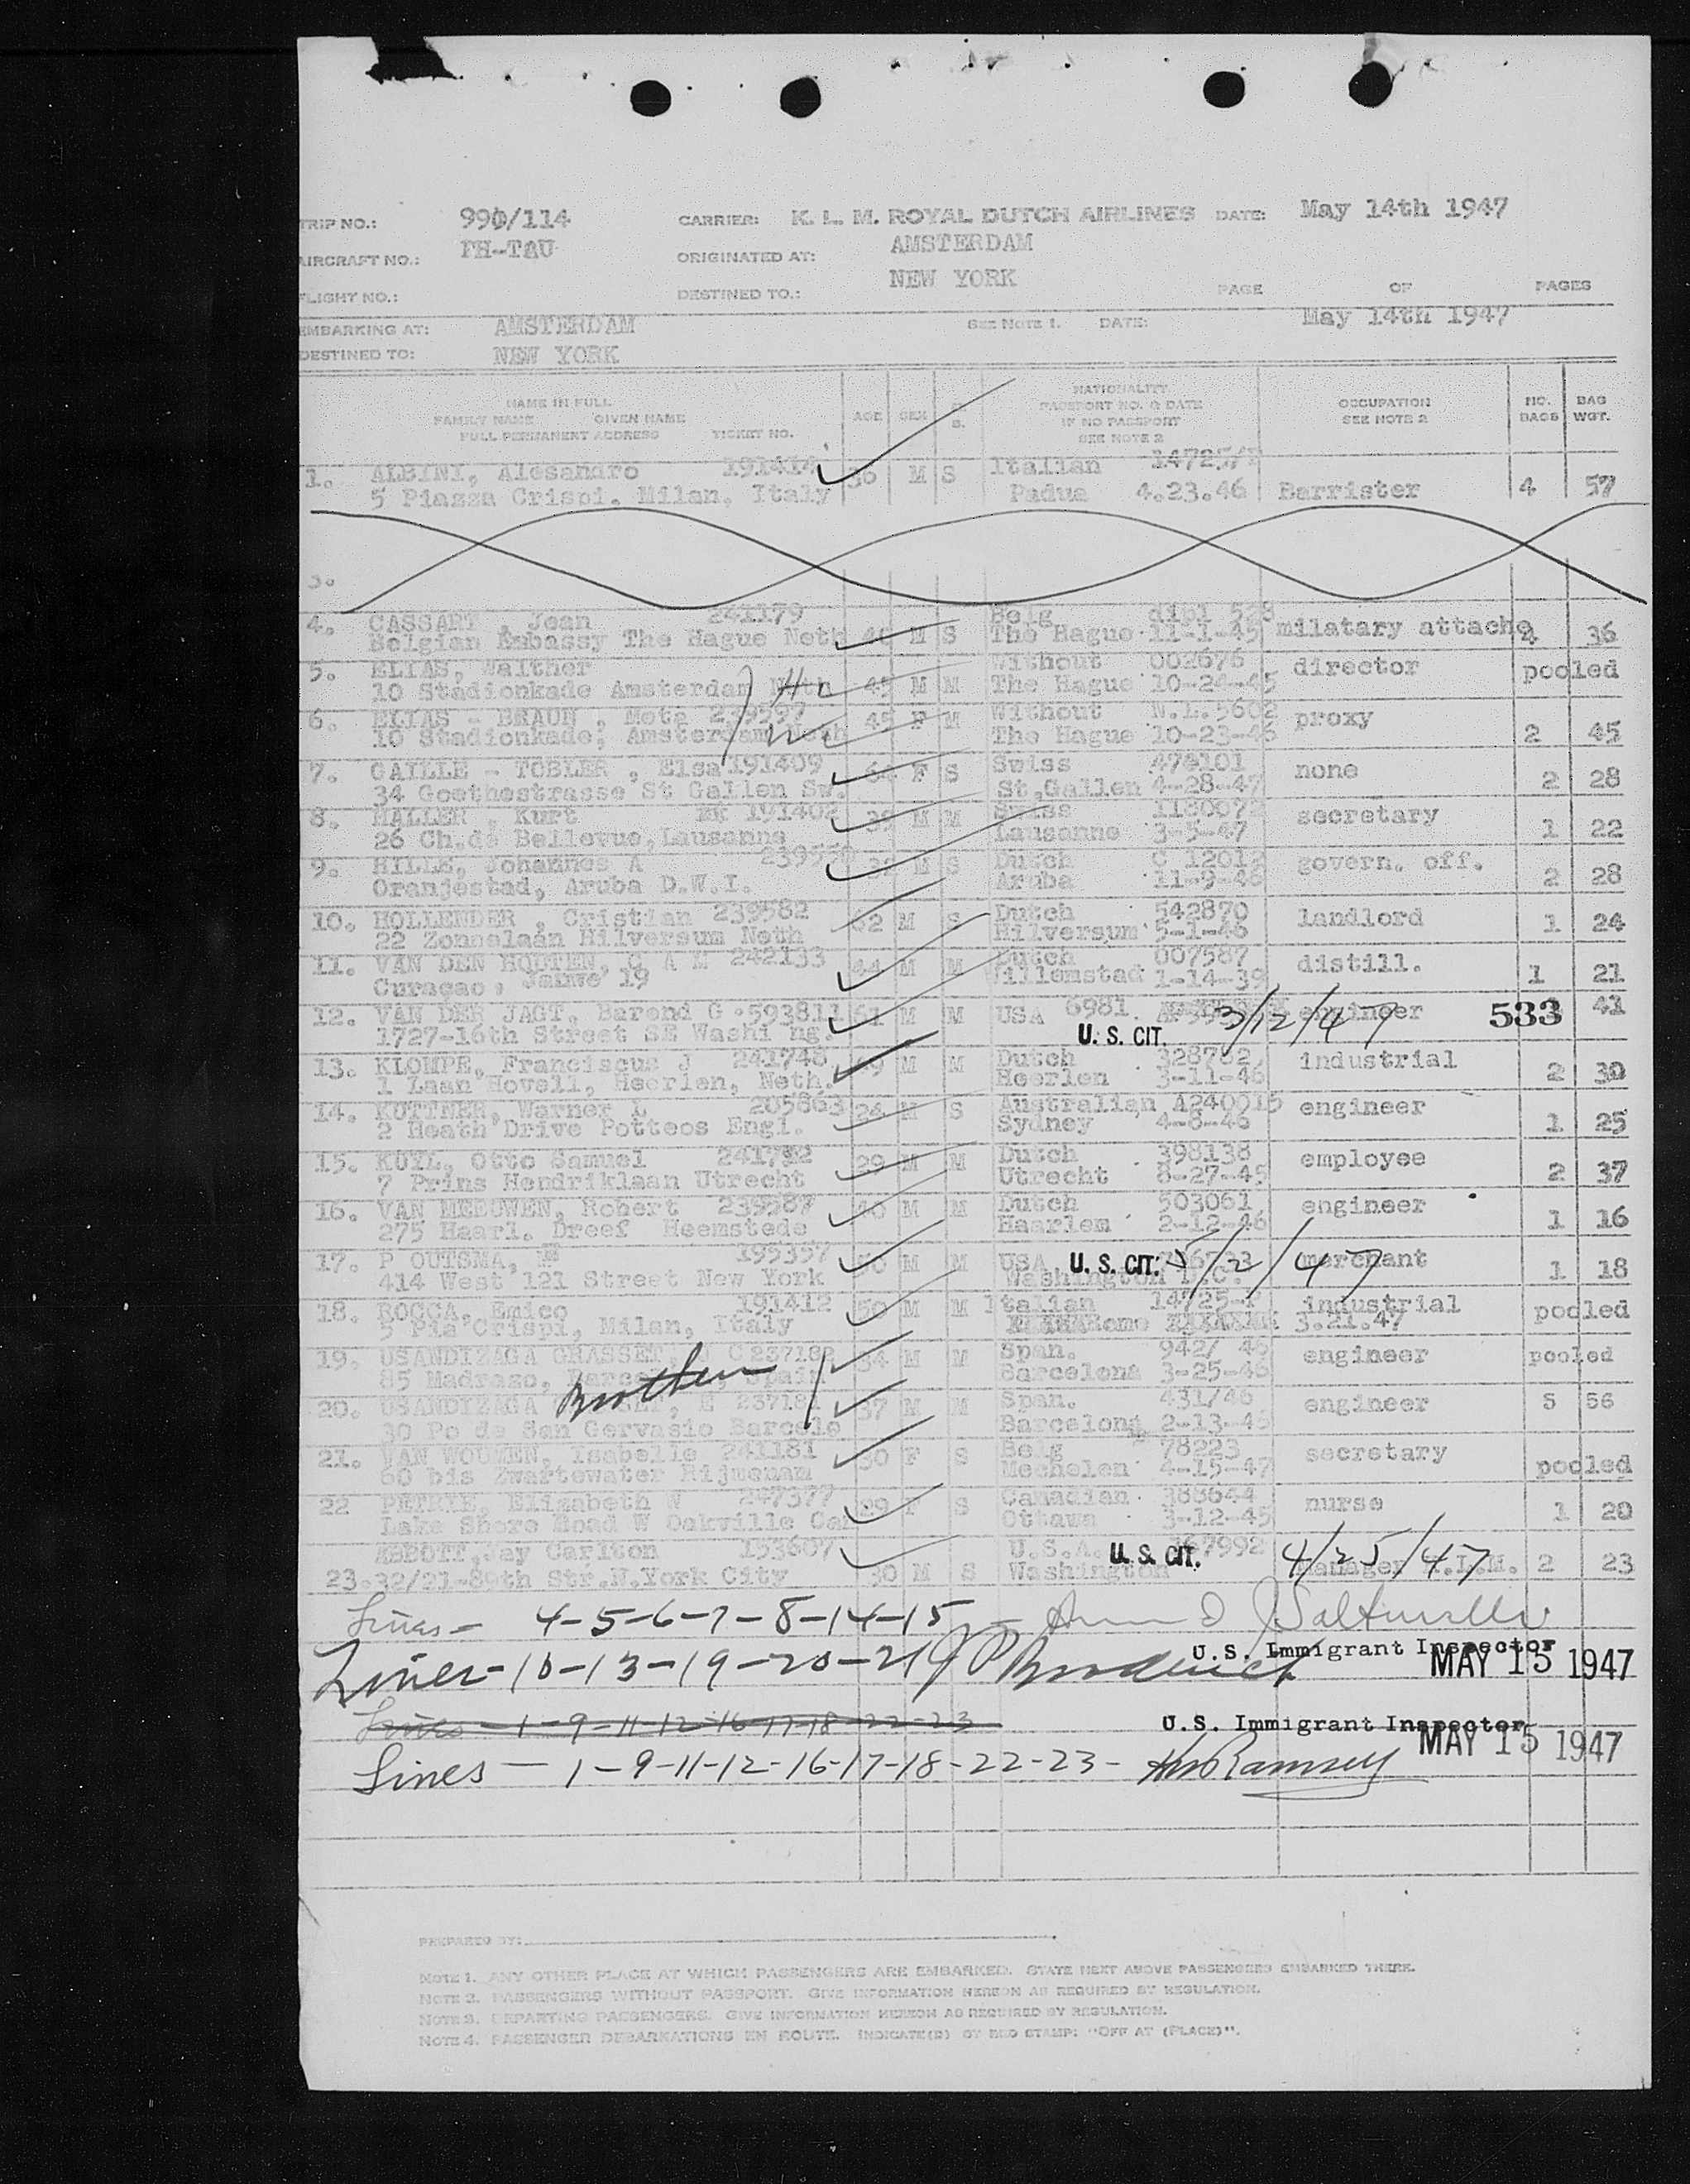 TRIP NO.: 990/114 CARRIER: K. L. M. ROYAL DUTCH AIRLINES DATE: May 14th 1947
AIRCRAFT NO.: PH-TAU ORIGINATED AT: AMSTERDAM
FLIGHT NO.: DESTINED TO.: NEW YORK PAGE OF PAGES
EMBARKING AT: AMSTERDAM SEE NOTE 1. DATE: May 14th 1947
DESTINED TO: NEW YORK
NAME IN FULL
FAMILY NAME GIVEN NAME
FULL PERMANENT ADDRESS TICKET NO.
AGE SEX S.
NATIONALITY
PASSPORT NO. & DATE
IF NO PASSPORT
SEE NOTE 2
OCCUPATION
SEE NOTE 2
NO. BAGS
BAG WGT.
1. ALBINI, Alesandro 191414 36 M S Italian 14725/
5 Piazza Crispi. Milan, Italy Padua 4.23.46 Barrister 4 57
3.
4. CASSART, Jean 241179 M S Belg dipl 528
Belgian Embassy The Hague Neth The Hague 11-1-45 milatary attache 4 36
5. ELIAS, Walther 45 M M Without 002676 director pooled
10 Stadionkade Amsterdam Neth The Hague 10-24-45
6. ELIAS - BRAUN, Meta 239597 45 F M Without N.L. 5602 proxy
10 Stadionkade; Amsterdam Neth The Hague 10-23-46 2 45
7. CAILLE - TOBLER, Elsa 191409 64 F S Swiss 474101 none
34 Goethestrasse St Gallen Sw. St,Gallen 4-28-47 2 28
8. HALLER, Kurt 191402 39 M M Swiss 1180072 secretary
26 Ch.de Bellevue,Lausanne Lausanne 3-5-47 1 22
9. HILLE, Johannes A M S Dutch C 12012 govern. off.
Oranjestad, Aruba D.W.I. Aruba 11-9-46 2 28
10. HOLLENDER, Cristian 239582 62 M S Dutch 542870 landlord
22 Zonnelaan Hilversum Neth Hilversum 5-1-46 1 24
11. VAN DEN HOUTEN, C A M 242133 44 M M Dutch 007587 distill.
Curaçao, Janwe 19 Willemstad 1-14-39 1 21
12. VAN DER JAGT, Barend G 593811 61 M M USA 6981 3/12/47 engineer 533 41
1727-16th Street SE Washi ng. U. S. CIT.
13. KLOMPE, Franciscus J 241748 49 M M Dutch 328762 industrial
1 Laan Hovell, Heerlen, Neth. Heerlen 3-11-46 2 30
14. KUTTNER, Warner L 205863 24 M S Australian A240015 engineer
2 Heath Drive Potteos Engl. Sydney 4-8-46 1 25
15. KUYL, Otto Samuel 241792 29 M M Dutch 398138 employee
7 Prins Hendriklaan Utrecht Utrecht 8-27-45 2 37
16. VAN MEEUWEN, Robert 239587 40 M M Dutch 503061 engineer
275 Haarl. Dreef Heemstede Haarlem 2-12-46 1 16
17. P OUTSMA, 195357 50 M M USA U. S. CIT. 5/2/47 merchant
414 West 121 Street New York Washington D.C. 1 18
18. ROCCA, Emico 191412 50 M M Italian 14725-P industrial pooled
5 Pia Crispi, Milan, Italy Rome 3.21.47
19. USANDIZAGA GRASSET C 237182 34 M M Span. 942/ 46 engineer pooled
85 Madrazo, Barcelona, Spain Barcelona 3-25-46
Brother
20. USANDIZAGA 237181 37 M M Span. 431/46 engineer 5 56
30 Po de San Gervasio Barcelo Barcelona 2-13-46
21. VAN WOUWEN, Isabelle 241181 30 F S Belg 78223 secretary
60 bis Zwartewater Rijmenam Mechelen 4-15-47 pooled
22 PETRIE, Elizabeth W 247377 29 F S Canadian 388644 nurse
Lake Shore Road W Oakville Can Ottawa 3-12-45 1 20
ABBOTT,Jay Carlton 153607 U.S.A. U. S. CIT. 4/25/47
23.32/21-89th Str.N.York City 30 M S Washington manager K.L.M. 2 23
Lines - 4-5-6-7-8-14-15
U.S. Immigrant Inspector
Lines - 10-13-19-20-21 J P Broderick MAY 15 1947
Lines - 1-9-11-12-16-17-18-22-23 U.S. Immigrant Inspector
MAY 15 1947
Lines - 1-9-11-12-16-17-18-22-23- Ramsey
PREPARED BY:
NOTE 1. ANY OTHER PLACE AT WHICH PASSENGERS ARE EMBARKED. STATE NEXT ABOVE PASSENGERS EMBARKED THERE.
NOTE 2. PASSENGERS WITHOUT PASSPORT. GIVE INFORMATION HEREON AS REQUIRED BY REGULATION.
NOTE 3. DEPARTING PASSENGERS. GIVE INFORMATION HEREON AS REQUIRED BY REGULATION.
NOTE 4. PASSENGER DEBARKATIONS EN ROUTE. INDICATE(D) BY RED STAMP: "OFF AT (PLACE)".